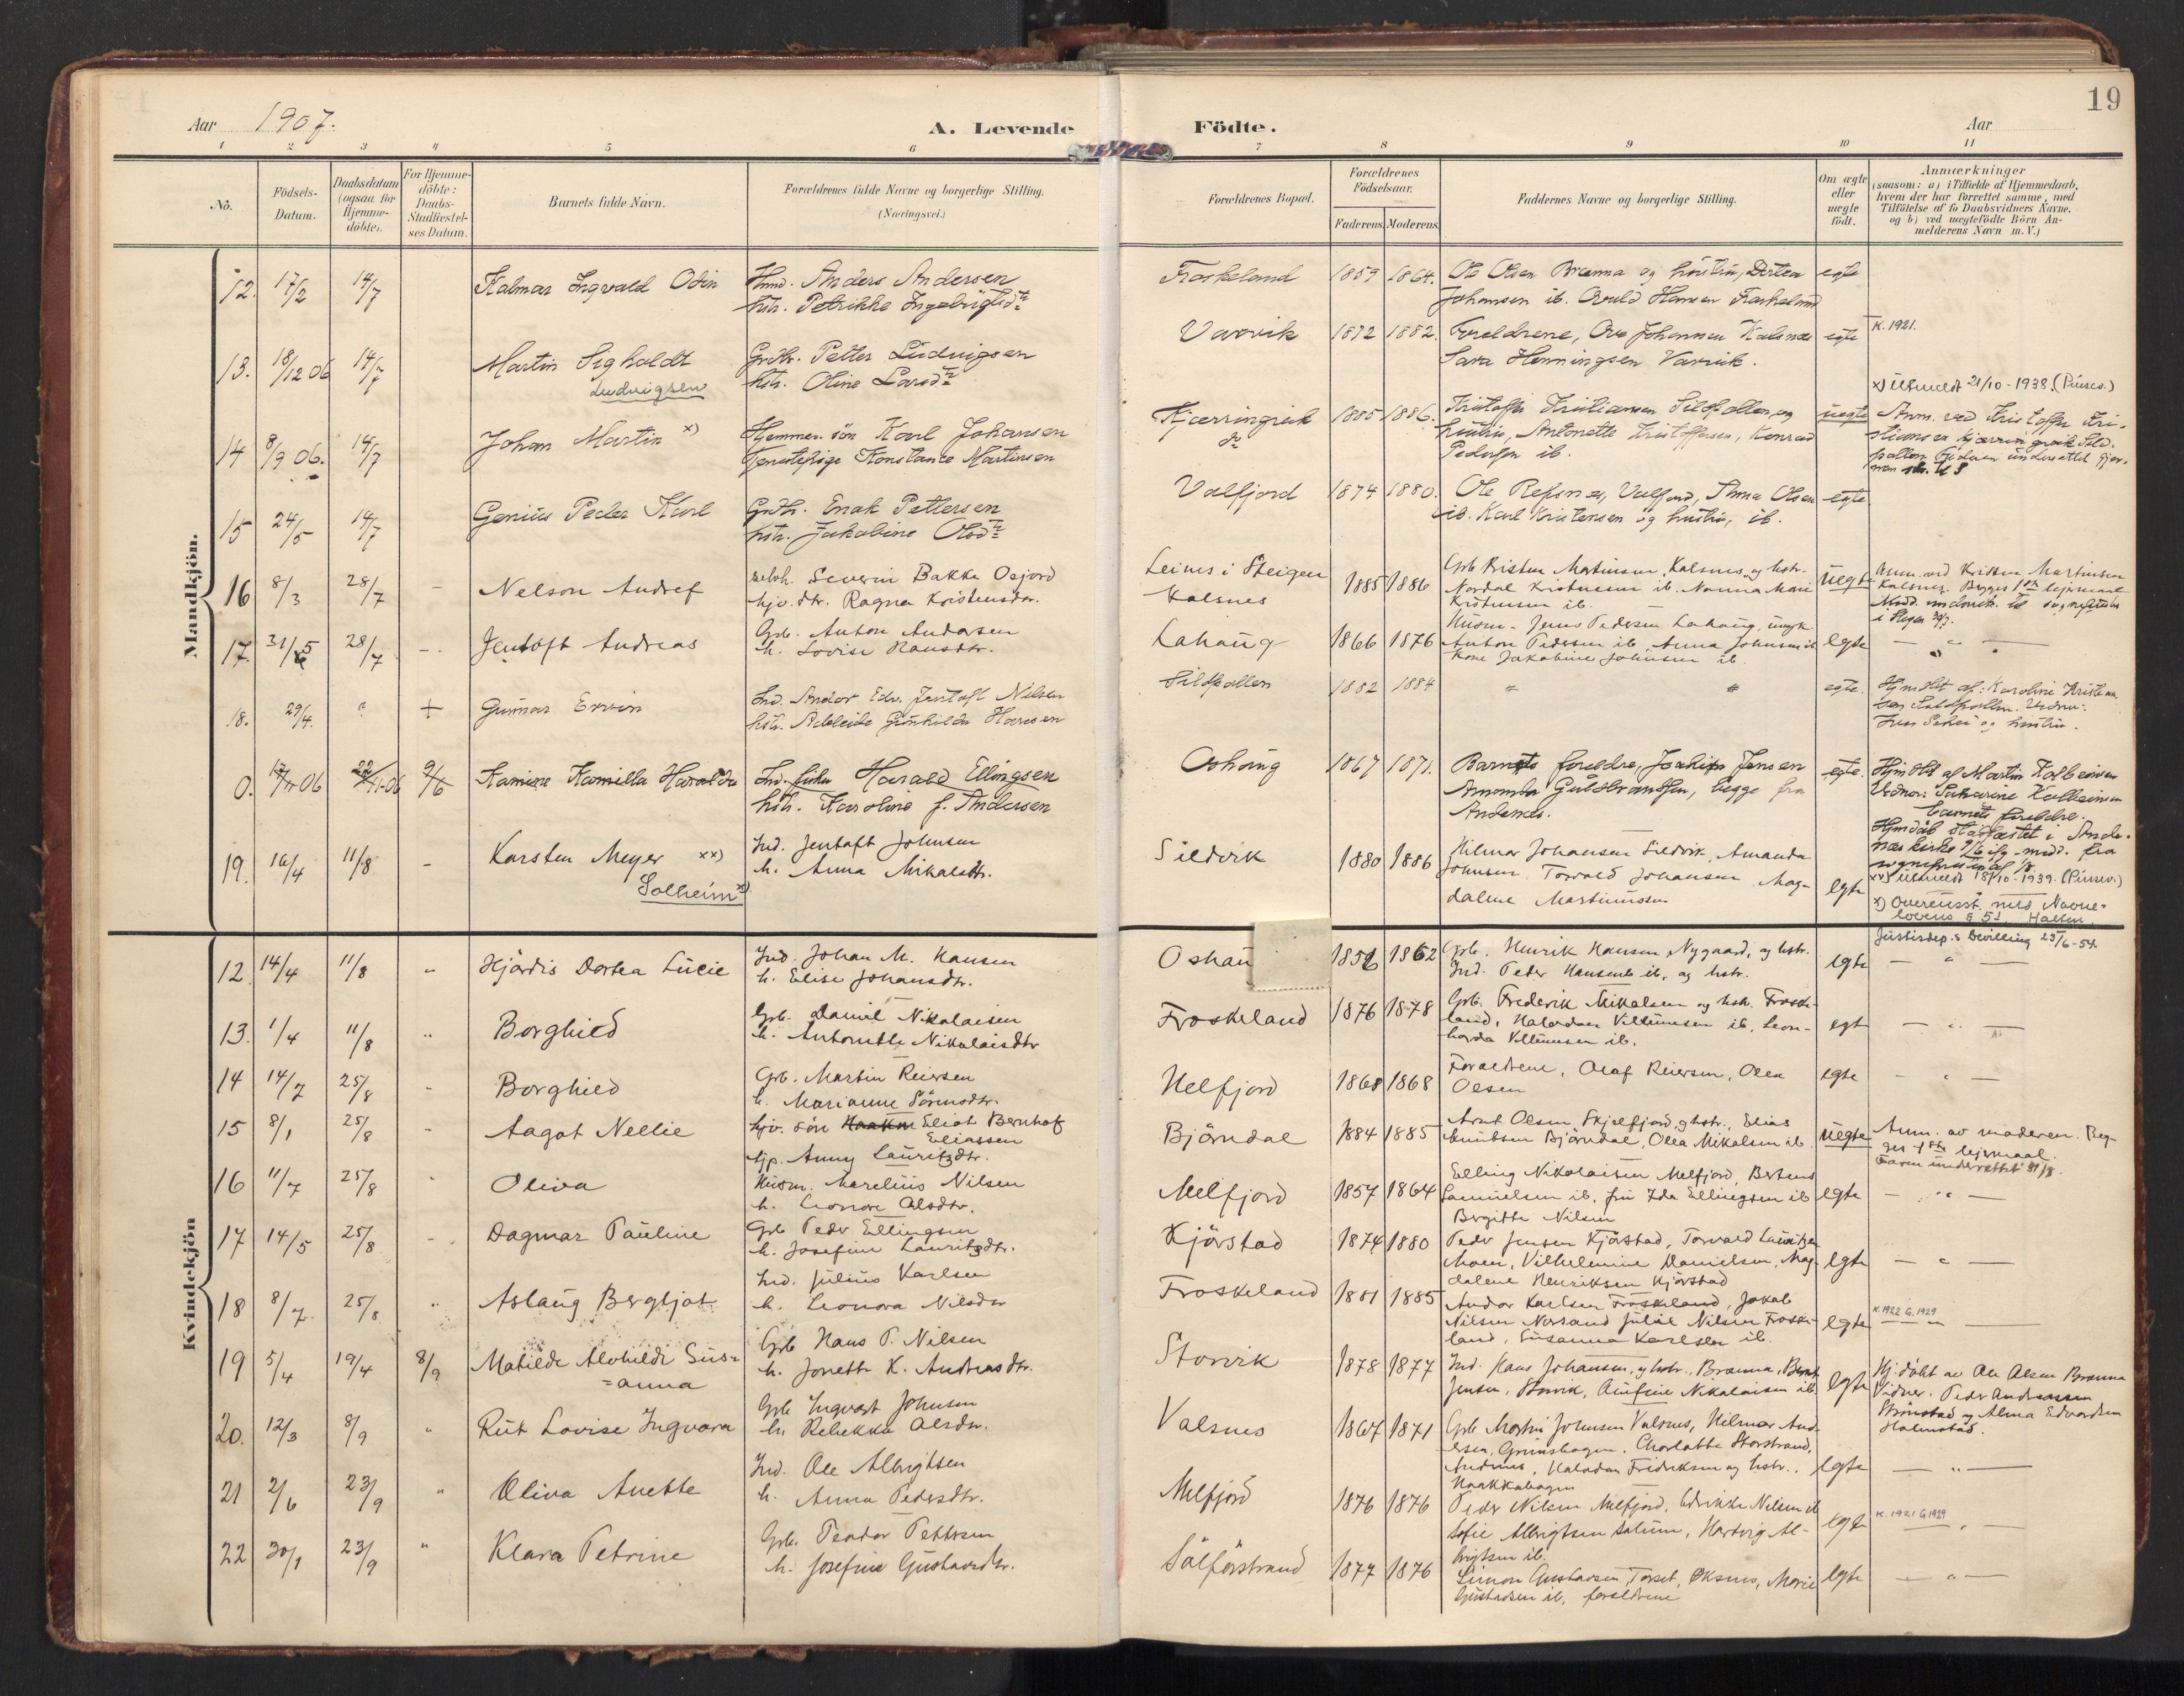 19
Aar 1907.
A. Levende
Födte.
Aar
1 2 3 4 5 6 7 8 9 10 11
No.
Födsels-
Datum.
Daabsdatum
(ogsaa for
Hjemme-
döbte).
For Hjemme-
döbte:
Daabs-
Stadfæstel-
ses Datum.
Barnets fulde Navn.
Forældrenes fulde Navne og borgerlige Stilling.
(Næringsvei.)
Forældrenes Bopæl.
Forældrenes
Födselsaar.
Faderens. Moderens.
Faddernes Navne og borgerlige Stilling.
Om ægte
eller
uægte
födt.
Anmærkninger
(saasom: a) i Tilfælde af Hjemmedaab,
hvem der har forrettet samme, med
Tilföielse af to Daabsvidners Navne.
og b) ved uægtefödte Börn An-
melderens Navn m. V.)
Mandkjön.
12. 17/2 14/7 Halmar Ingvald Odin
Anders Andersen
hstr. Petrikke
Froskeland 1859 1864.
Ole Olsen Brænna og hustru, Dortea
Johansen ib. Hansen Froskeland
egte
13. 18/12 06 14/7 Martin Sigholdt
Ludvigsen
Petter Ludvigsen
hstr. Oline
Varvik 1872 1882.
Foreldrene, Ove Johannesen Kalsnes
Sara Henningsen Varvik.
egte
K. 1921.
x) Utmeldt 21/10 - 1938. (Pinsev.)
14 8/9 06. 14/7 Johan Martin x)
Hjemmev. sön Karl Johansen
Tjenestepige Konstance Martinsen
Kjerringvik 1885 1886.
Kristoffer Kristiansen Sildpollen, og
hustru, Antonette Kristoffersen, Konrad
Pedersen ib.
uegte
Anm. ved Kristoffer Kri-
stiansen
15 24/5 14/7 Genius Peder Karl
Enok Pettersen
hstr. Jakobine
Valfjord 1874 1880.
Ole Valfjord, Anna Olsen
ib. Karl Kristensen og hustru, ib.
egte.
16 8/3 28/7 - Nelson Andref
Severin Bakke Osjord
hjv. dtr. Ragna Kristensdtr.
Leines i Steigen
Kalsnes 1885 1886
Grb Kristen Martinsen, Kalsnes, og hstr.
Nordal Kristensen ib. Nanna Marie
Kristensen ib.
Uegte
Anm. ved Kristen Martinsen
Kalsnes. Begges 1ste leiermaal
i Stegen
17. 31/5 28/7 -. Jentoft Andreas
Grb. Anton Andersen
h. Lovise Hansdtr.
Lahaug 1866 1876
Husm. Jens Pedersen Lahaug, ungk.
Anton Pedersen ib, Anna Johnsen ib
Kone Jakobine Johnsen ib.
Egte — " —
18. 29/4. + Gunnar Ervin
Ind. Andor Edv. Jentoft Nilsen
hstr. Adeleide Gunhilda Hansen
Sildpollen 1882 1884 " "
egte.
Hjmdbt af: Karoline Kristian
sen Sildpollen.
og hustru.
0. 17/11 06 22/11-06 9/6 Kamine Kamilla Haralda
Ind. fisker Harald Ellingsen
hstr. Karoline f. Andersen
Oshaug 1867 1871.
Barnets foreldre, Joakim Jensen
Amanda Guldbrandsen, begge fra
Andenes.
egte.
Hjmdbt af Martin Kolbeinsen
Vidner: Katarine Kolbeinsen
barnets foreldre.
Hjmdåb stadfæstet i Ande-
nes kirke 9/6 ifg. medd. fra
19. 16/4 11/8 - Karsten Meyer xx)
Solheim x)
Ind. Jentoft Johnsen
h. Anna Mikalsdtr.
Sildvik 1880 1886
Hilmar Johansen Sildvik, Amanda
Johnsen, Torvald Johansen, Mag-
dalene Martinussen
Egte
xx) Utmeldt 18/10 - 1939. (Pinsev.)
x) Overensst. med Navne-
lovens § 51. Halsen
Justisdep.s bevilling 25/6-54.
Kvindekjön
12 14/4 11/8 " Hjördis Dortea Lucie
Ind. Johan M. Hansen
h. Elise Johansdtr.
Oshau 1852 1862
Grb. Henrik Hansen, Nygaard, og hstr.
Ind. Peder Hansen ib. og hstr.
Egte — " —
13. 1/4 11/8 " Borghild
Grb. Daniel Nikolaisen
h. Antonette Nikolaisdtr
Froskeland 1876 1878
Grb. Frederik Mikalsen og hstr. Froske-
land, Halvdan Villumsen ib, Leon-
harda Villumsen ib.
Egt — " —
14 14/7 25/8 - Borghild
Grb. Martin Reiersen
h. Marianne Sörensdtr.
Helfjord 1868 1868
Forældrene, Olaf Reiersen, Olea
Olsen
Egte — " —
15 8/1 25/8 - Aagot Nellie
hjv. sön Haakon Eliot Bernhof
Eliassen
tjp. Anny Lauritzdtr.
Björndal 1884 1885
Arnt Olsen, Skjelfjord, og hstr., Elias
Knudsen Björndal, Olea Mikalsen ib
Uegte
Anm. av moderen. Beg-
ges 1ste leiermaal.
Faren underrettet 31/8.
16 11/7 25/8 - Oliva
Husm. Marelius Nilsen
h. Leonore Olsdtr.
Melfjord 1857 1864
Elling Nikolaisen Melfjord, Bertens
Samuelsen ib, fru Ida Ellingsen ib
Bergitte Nilsen
Egte — " —
17 14/5 25/8 - Dagmar Pauline
Grb Peder Ellingsen
h. Josefine Lauritzdtr.
Kjörstad 1874 1880
Peder Jensen Kjörstad, Torvald Lauritzen
Moen, Vilhelmine Danielsen, Mag-
dalene Henriksen Kjörstad
Egte — " —
18 8/7 25/8 " Aslaug Bergljot
Ind. Julius Karlsen
h. Leonora Nilsdtr
Froskeland 1881 1885
Andor Karlsen Froskeland, Jakob
Nilsen Nersand Julie Nilsen Froske-
land, Susanna Karlsen ib.
Egte
K. 1922 G. 1929
19 5/4 19/4 8/9 Matilde Alvhilde Sus=
=anna
Grb Hans P. Nilsen
h. Jonette K. Andreasdtr.
Storvik 1878 1877
Ind. Hans Johansen, og hstr., Brænna, Bernt
Jensen, Storvik, Nikolaisen ib.
Egte
Hj. döbt av Ole Olsen Brænna
Vidner. Peder Andreassen
Strönstad og Alma Edvardsen
Holmstad.
20. 12/3 8/9 " Rut Lovise Ingvara
Grb Ingvart Johnsen
h. Rebekka Olsdtr.
Valsnes 1867 1871
Grb Martin Johnsen Valsnes, Hilmar And-
ersen, Grunshagen, Charlotte Storstrand,
Andenes, Halvdan Fredriksen og hstr.,
Haakkahagen
Egte — " —
21 2/6 23/9 " Oliva Anette
Ind. Ole Albrigtsen
h. Anna Pedersdtr.
Melfjord 1876 1876
Peder Nilsen Melfjord, Nilsen ib
Sofie Albrigtsen, Hartvig Al-
brigtsen ib.
Egte
K. 1921 G 1929
22 30/1 23/9 " Klara Petrine
Grb. Teodor Pettersen
h. Josefine Gustavsdtr.
Sölförstrand 1877 1876
Simon Gustavsen, Torset, Öksnes, Marie
Gustavsen ib, foreldrene
Egte — " —